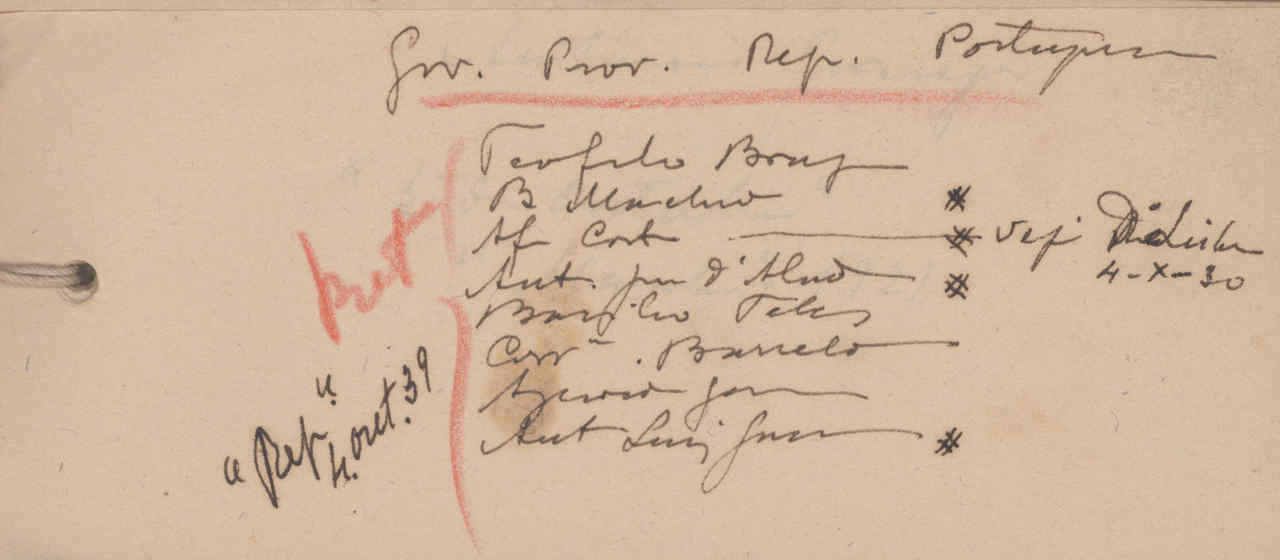 Gov. Prov. Rep. Portuguesa
Teofilo Braga
B Machado #
Af Costa — # Vej
Ant. José d'Almd #
4-X-30
Basilio Teles
Corrª. Barreto
Azevedo Gomes
Ant Luiz Gomes #
"Rep"
4. out. 39